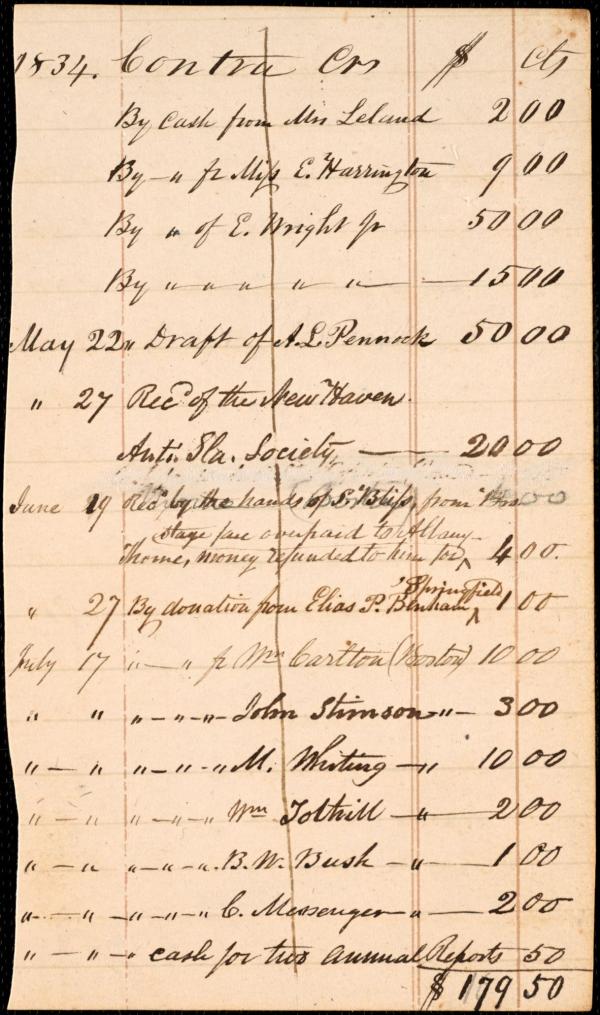 1834. Contra Crs $ cts
By cash from Mrs Leland 2 00
By — " fr Miss E. Harrington 9 00
By " of E. Wright Jr 50 00
By " — " — " " " — 15 00
May 22 " Draft of A. L. Pennock 50 00
" 27 Recd of the New Haven
Anti. Sla. Society — 20 00
June 19 Recd by the hands of S. Bliss, from Bro
Stage fare overpaid to Albany
Thome, money refunded to him for ^ 4 00.
Springfield
" 27 By donation from Elias P. Benham ^ 1 00
July 17 " — " fr Wm Carlton (Boston) 10 00
" " " — " — " — John Stimson — " — 3 00
" — " " — " — " M. Whiting — " 10 00
" — " " — " — " Wm Tothill — " — 2 00
" — " " — " — " . B. W. Bush — " — 1 00
" — " " — " — " C. Messenger — " — 2 00
" — " " — " — cash for two annual Reports 50
$ 179 50